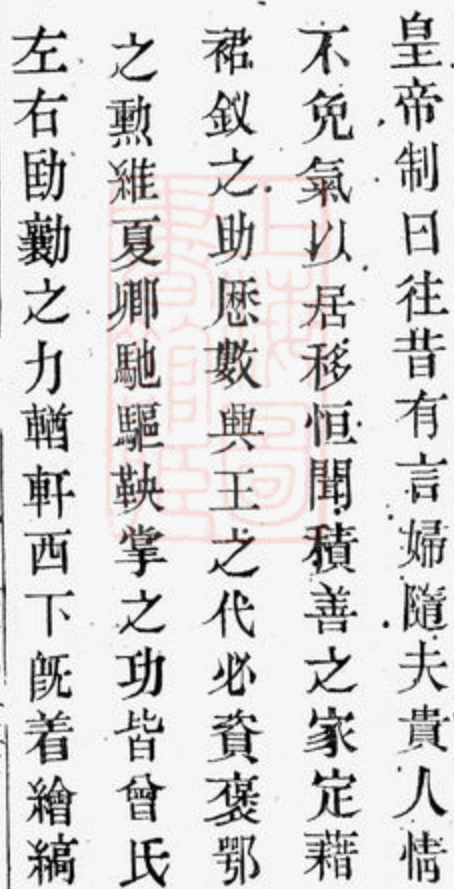 皇帝制曰往昔有言婦隨夫貴人情
不免氣以居移恒聞積善之家定藉
裙釵之助歷數興王之代必資褒鄂
之勳維夏卿馳驅鞅掌之功皆曾氏
左右劻勷之力輶軒西下旣着繪縞
上海圖書館藏